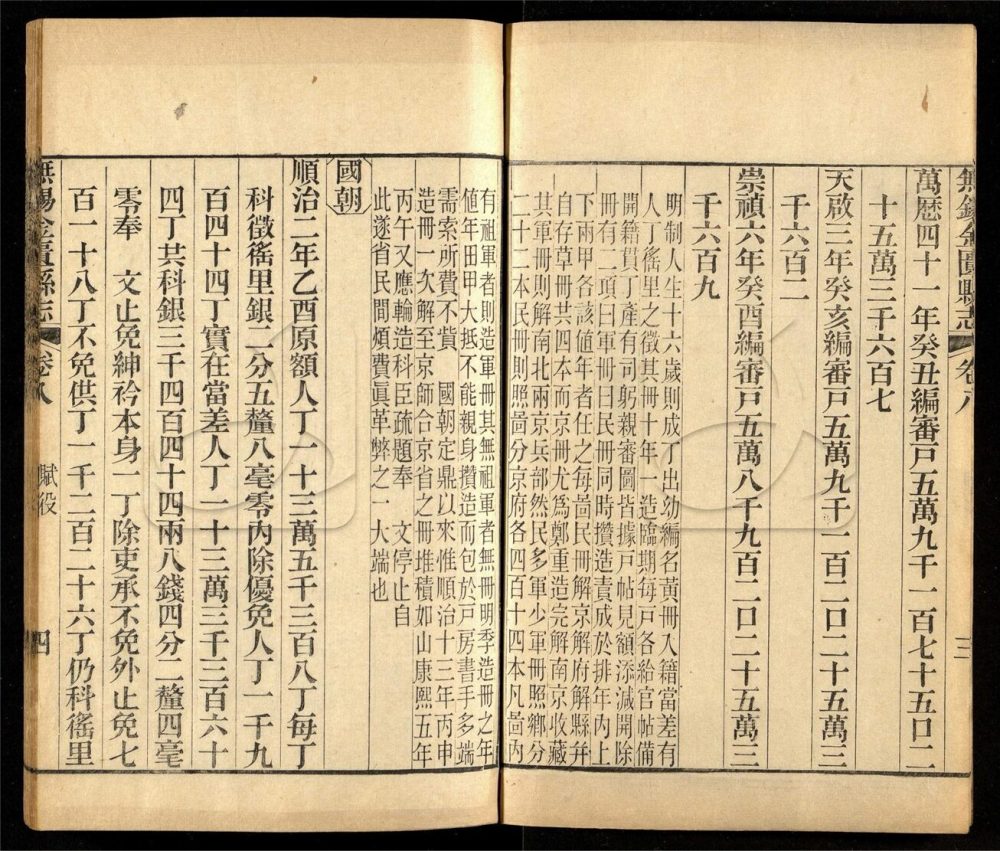 無錫金匱縣志 卷八 三
萬曆四十一年癸丑編審戸五萬九千一百七十五口二
十五萬三千六百七
天啟三年癸亥編審戸五萬九千一百二口二十五萬三
千六百二
崇禎六年癸酉編審戸五萬八千九百二口二十五萬三
千六百九
明制人生十六歲則成丁出幼編名黃冊入籍當差有
人丁徭里之徵其冊十年一造臨期每戸各給官帖備
開籍貫丁產有司躬親審圖皆據戸帖見額添減開除
冊有二項曰軍冊曰民冊同時攢造責成於排年内上
下兩甲各該値年者任之每啚民冊解京解府解縣幷
自存草冊共四本而京冊尤爲鄭重造完解南京收藏
其軍冊則解南北兩京兵部然民多軍少軍冊照鄉分
二十二本民冊則照啚分京府各四百十四本凡啚内
有祖軍者則造軍冊其無祖軍者無冊明季造冊之年
値年田甲大抵不能親身攢造而包於戸房書手多端
需索所費不貲 國朝定鼎以來惟順治十三年丙申
造冊一次解至京師合京省之冊堆積如山康熙五年
丙午又應輪造科臣疏題奉 文停止自
此遂省民間煩費眞革弊之一大端也
國朝
順治二年乙酉原額人丁一十三萬五千三百八丁每丁
科徵徭里銀二分五釐八毫零内除優免人丁一千九
百四十四丁實在當差人丁一十三萬三千三百六十
四丁共科銀三千四百四十四兩八錢四分二釐四毫
零奉 文止免紳衿本身一丁除吏承不免外止免七
百一十八丁不免供丁一千二百二十六丁仍科徭里
無錫金匱縣志 卷八 賦役 四